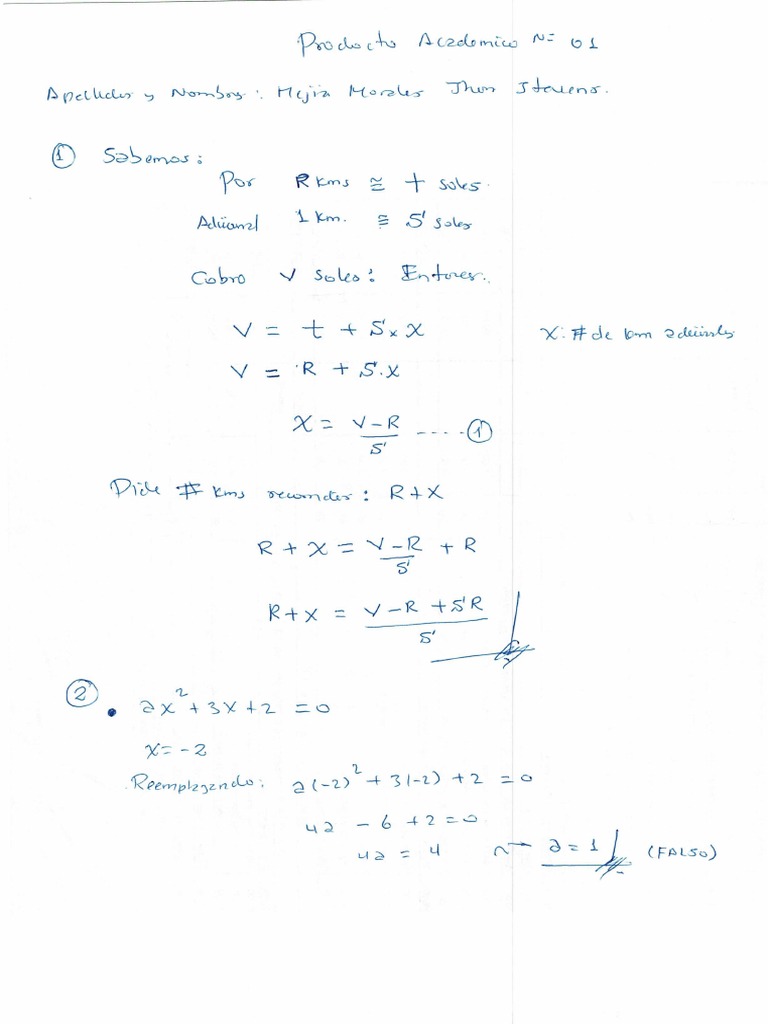 Producto Academico N= 01
Apellidos y Nombres: Mejia Morales Jhon Stevens.
① Sabemos:
Por R kms ≅ t soles.
1 km. ≅ S soles
Cobro V soles: Entonces.
V = t + S x X
X: # de km adicionales
V = R + S.X
X = (V-R)/S ---- ①
Pide # kms recorridos: R+X
R + X = (V-R)/S + R
R+X = (V-R+SR)/S
② • ax² + 3x + 2 = 0
x = -2
Reemplazando: a(-2)² + 3(-2) + 2 = 0
4a - 6 + 2 = 0
4a = 4 → a = 1 (FALSO)